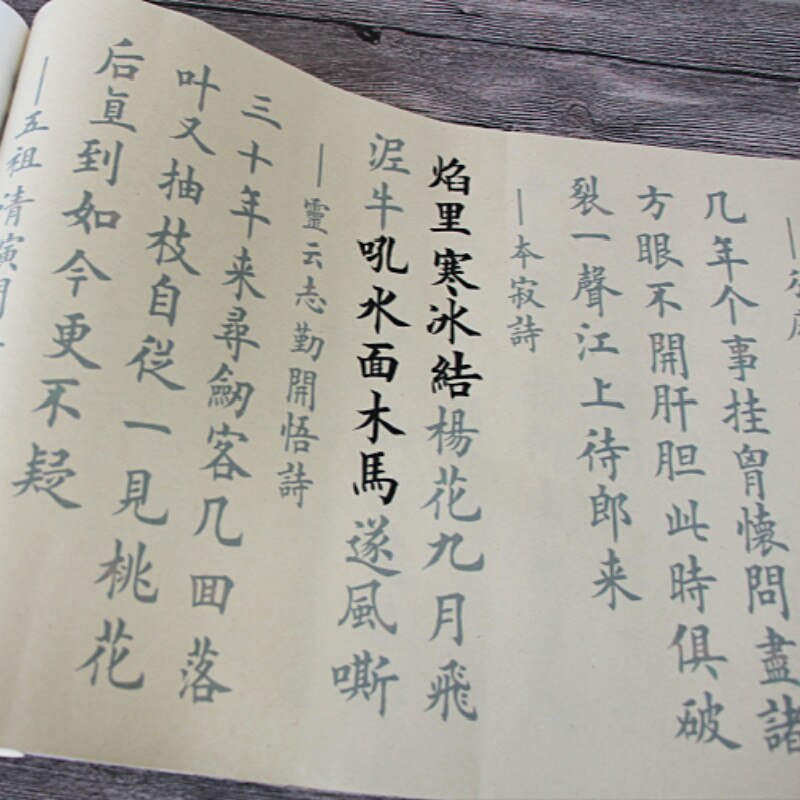 几年个事挂胷懷問盡諸
方眼不開肝胆此時俱破
裂一聲江上待郎来
——本寂詩
焰里寒冰結楊花九月飛
泥牛吼水面木馬逐風嘶
——靈云志勤開悟詩
三十年来尋劒客几囬落
叶又抽枝自従一見桃花
后直到如今更不疑
——五祖清演開